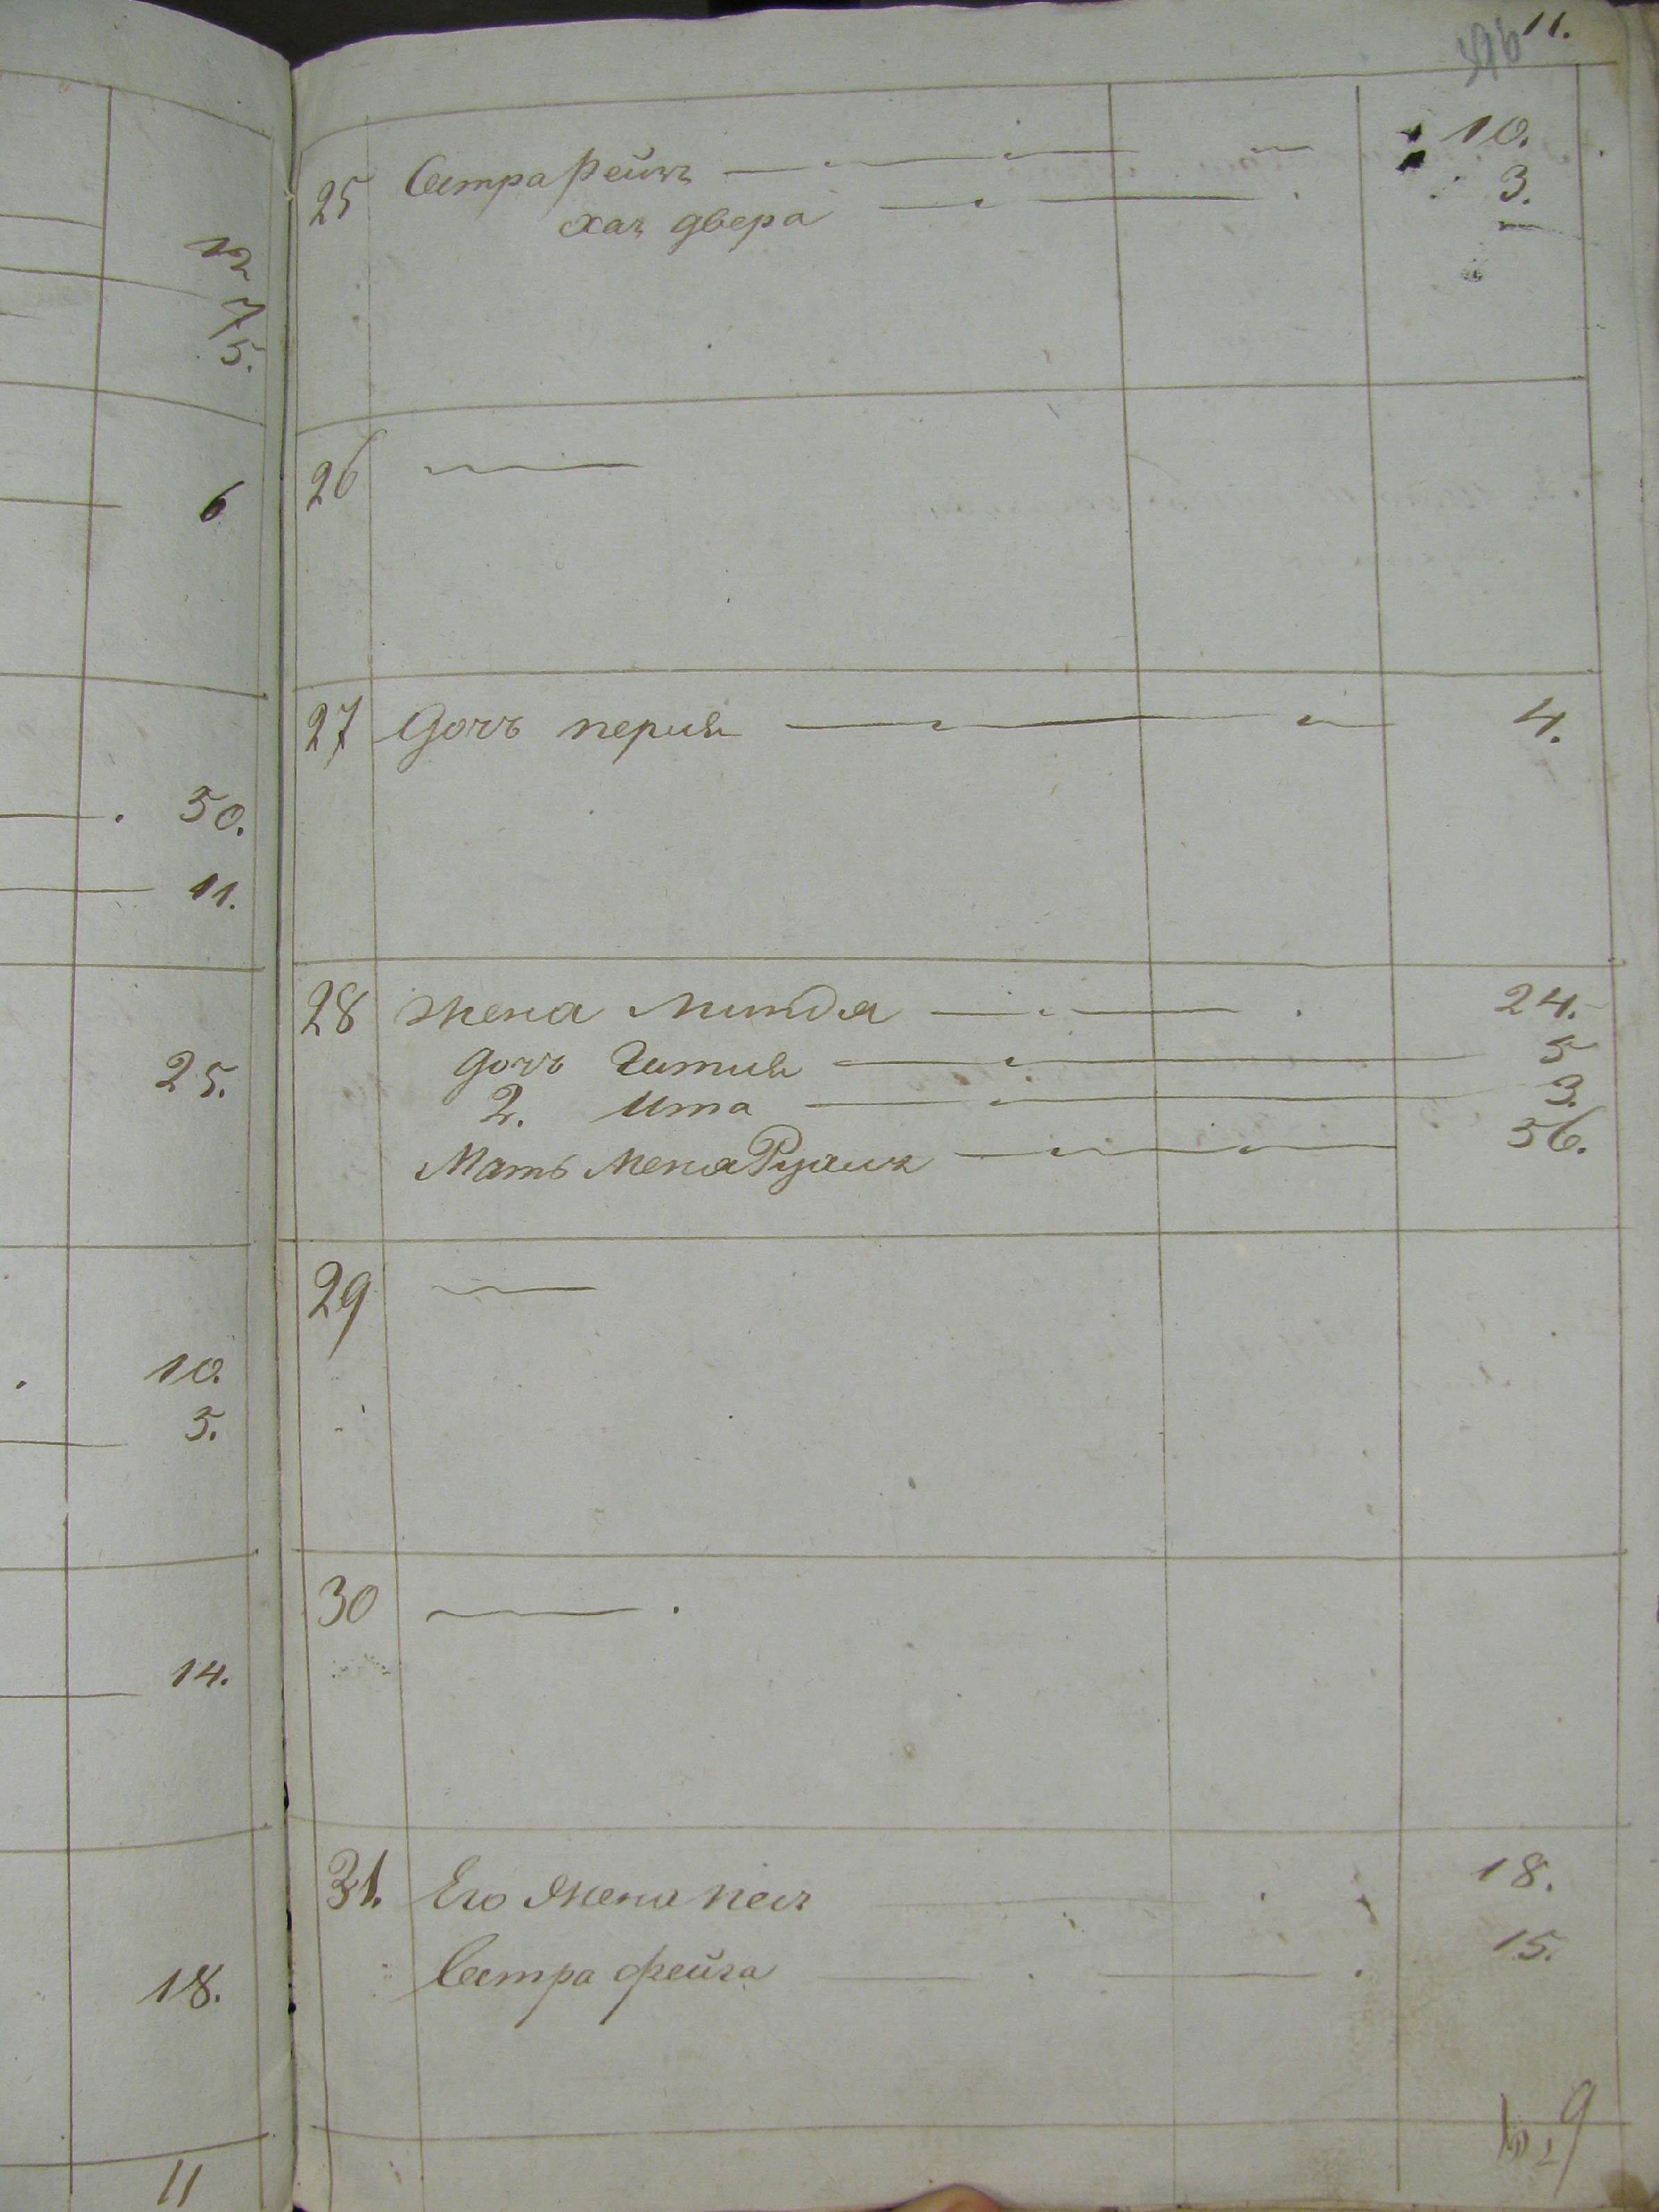 12
7
5.
6
50.
11.
25.
10.
5.
14.
18.
11
11.
25 Сестра Фейга 10.
хая двера 3.
26
27 Дочь перля 4.
28 Жена Минdя 24.
дочь Гитля 5
2. Ита 3.
Мать Мена 56.
29
30
31. Его Жена 18.
Сестра фейга 15.
9